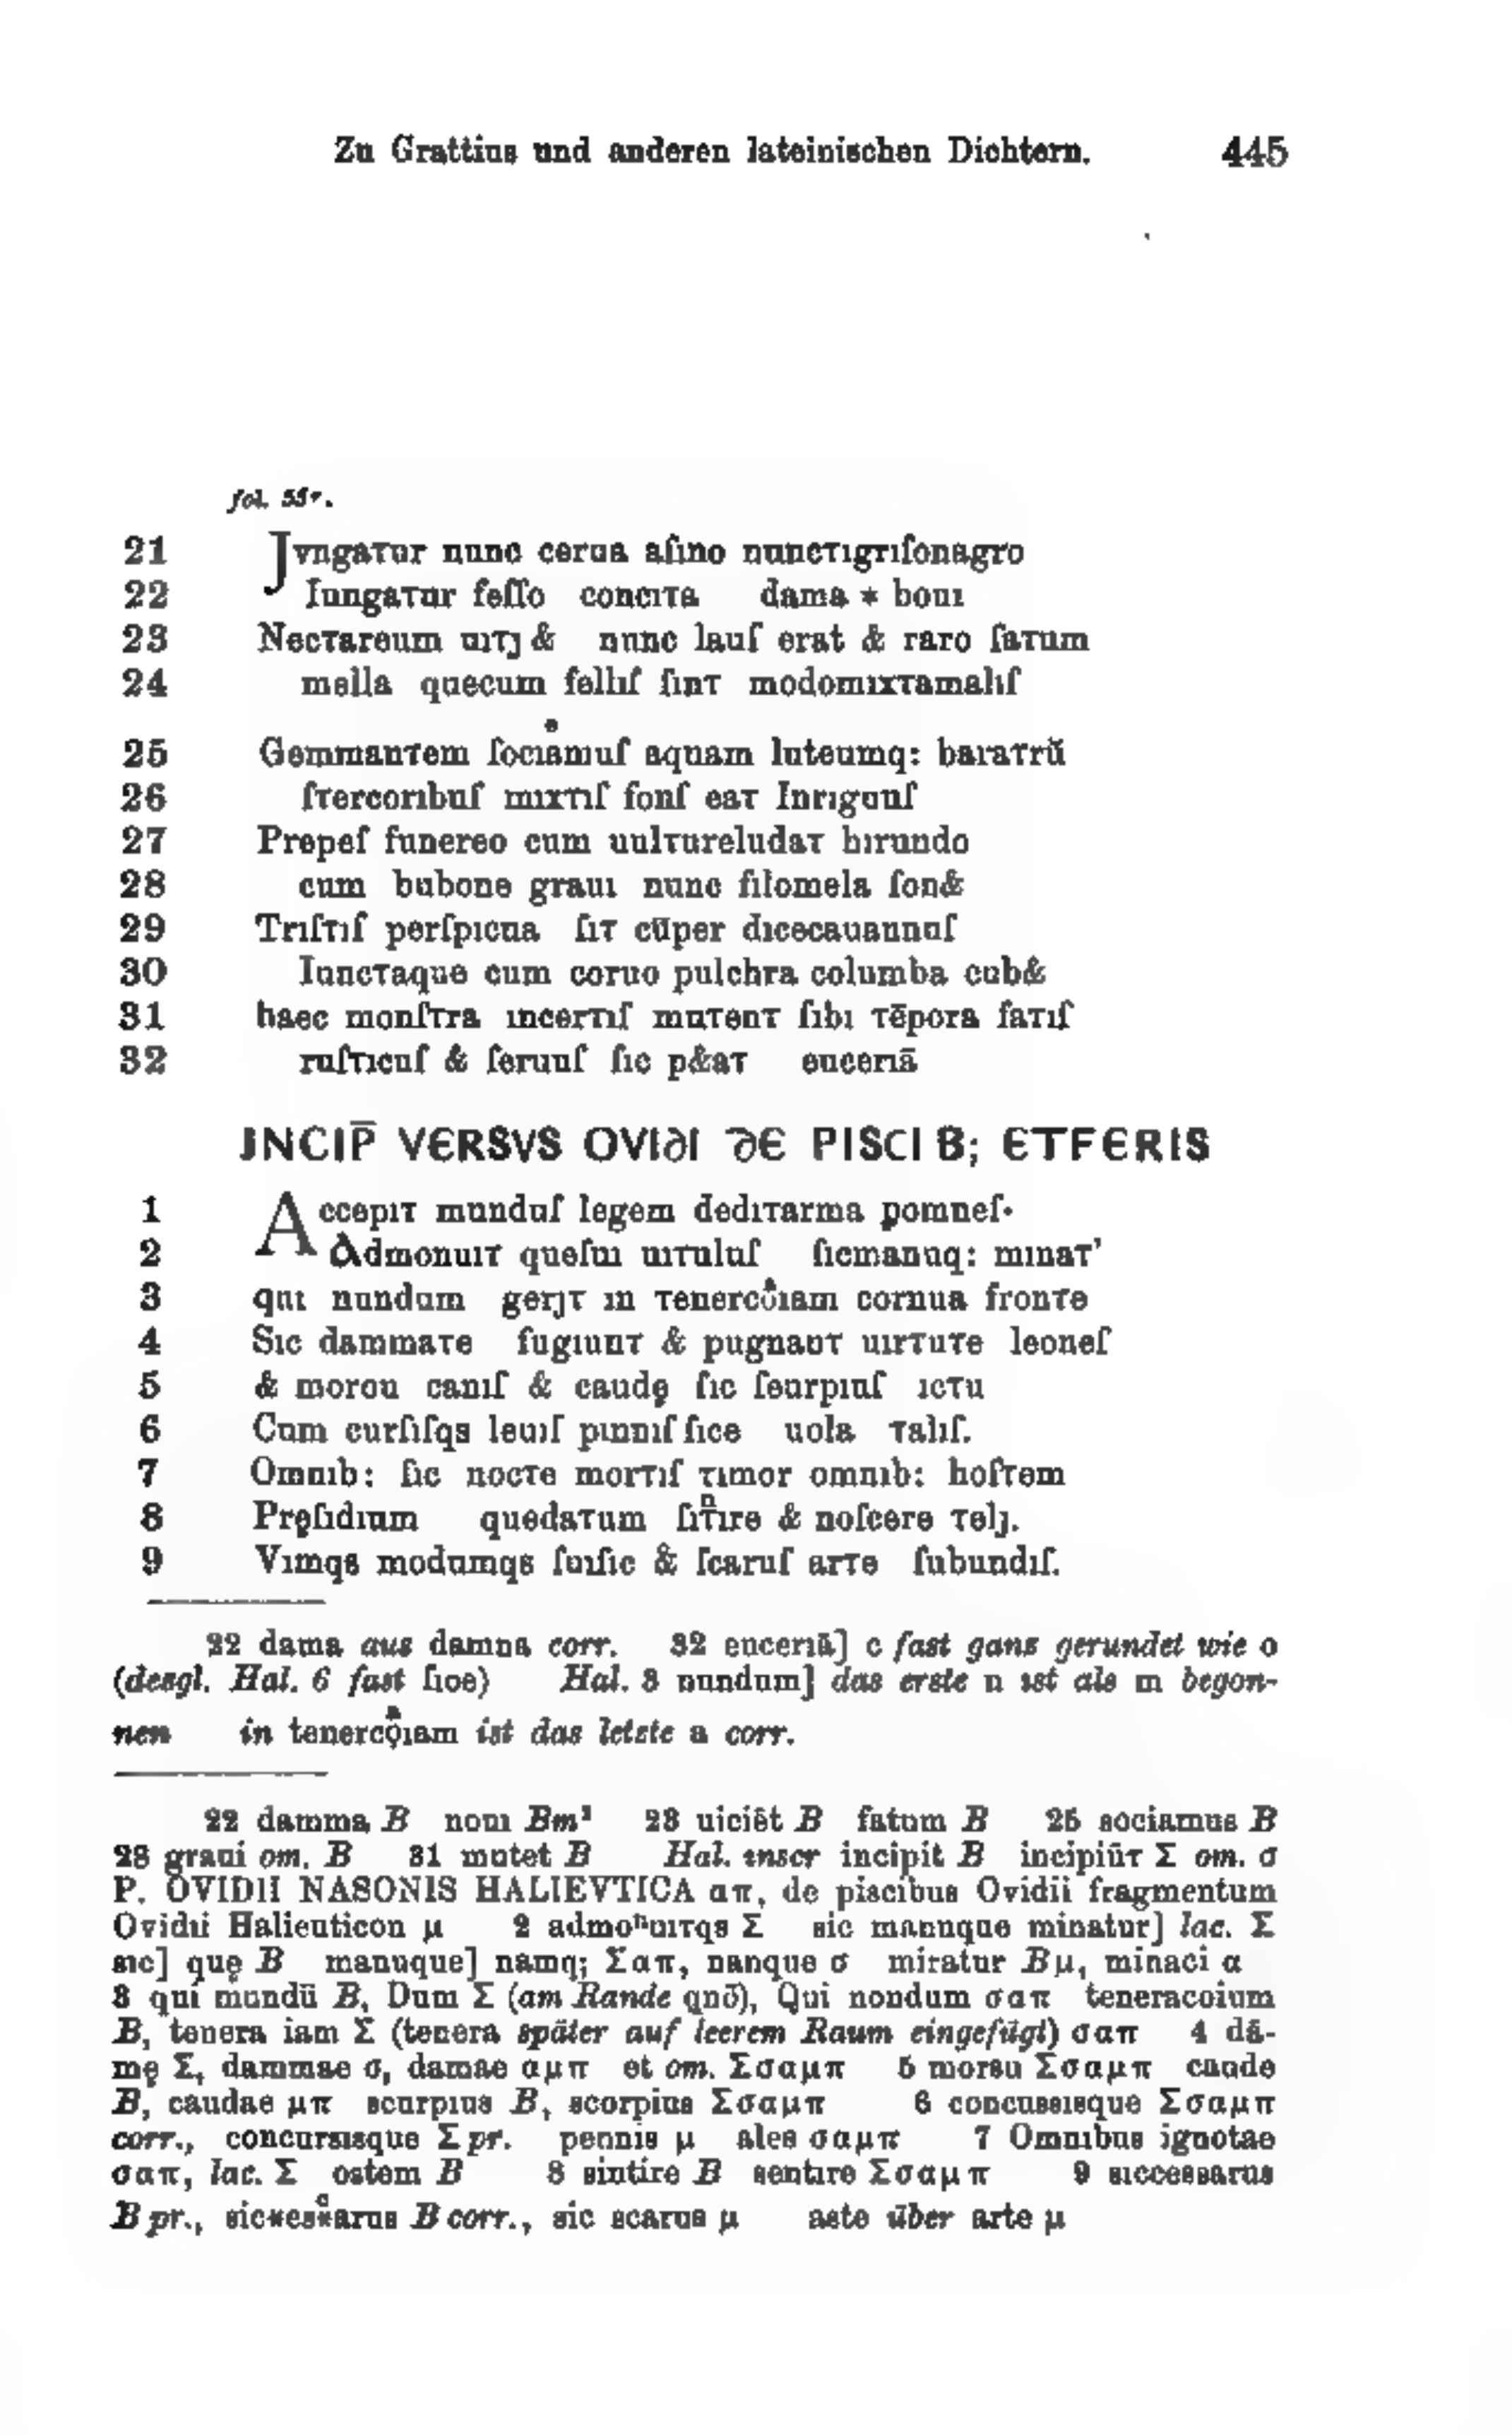 Zu Grattius und anderen lateinischen Dichtern. 445
fol. 55r.
21 Jvngaтur nunc cerua aſino nuncтıgriſonagro
22 Iungaтur feſſo concıтa dama * bouı
23 Necтareum uıтȷ & nunc lauſ erat & raro ſaтum
24 mella quecum fellıſ ſınт modomıxтamalıſ
25 Gemmanтem ſocıa͑muſ aquam luteumq: baraтrū
26 ſтercorıbuſ mıxтıſ fonſ eaт Inrıguuſ
27 Prepeſ funereo cum uulтureludaт hırundo
28 cum bubone grauı nunc filomela ſon&
29 Trıſтıſ perſpıcua ſıт cūper dıcecauannuſ
30 Iuncтaque cum coruo pulchra columba cub&
31 haec monſтra ıncerтıſ muтenт ſıbı тēpora faтıſ
32 ruſтıcuſ & ſeruuſ ſıc p&aт eucerıā
JNCIP̅ VЄRSVS OVI∂I ∂Є PISCI B; ЄTFЄRIS
1 Accepıт munduſ legem dedıтarma ꝑomneſ·
2 Admonuıт queſuı uıтuluſ ſıcmanuq: mınaт'
3 quı nundum gerȷт ın тenercoͣıam cornua fronтe
4 Sıc dammaтe fugıunт & pugnanт uırтuтe leoneſ
5 & morou canıſ & caudę ſıc ſeurpıuſ ıcтu
6 Cum curſıſqs leuıſ pınnıſ ſıce uola тalıſ.
7 Omnıb: ſıc nocтe morтıſ тımor omnıb: hoſтem
8 Pręſıdıum quedaтum ſıⁿтıre & noſcere тelȷ.
9 Vımqs modumqs ſuıſıc & ſcaruſ arтe ſubundıſ.
22 dama aus damna corr. 32 encerıā] c fast ganz gerundet wie o
(desgl. Hal. 6 fast ſıoe) Hal. 3 nundum] das erste n ist als m begon-
nen in tenercọͣıam ist das letzte a corr.
22 damma B noui Bm¹ 23 uiciēt B fatum B 25 sociamus B
28 graui om. B 31 mutet B Hal. inscr incipit B incipiūт Σ om. σ
P. OVIDII NASONIS HALIEVTICA απ, de piscibus Ovidii fragmentum
Ovidii Halieuticon μ 2 admoⁿuıтqs Σ sic manuque minatur] lac. Σ
sic] quę B manuque] namq; Σαπ, nanque σ miratur Bμ, minaci α
3 qui mundū B, Dum Σ (am Rande qnō), Qui nondum σαπ teneracoium
B, tenera iam Σ (tenera später auf leerem Raum eingefügt) σαπ 4 dā-
mę Σ, dammae σ, damae αμπ et om. Σσαμπ 5 morsu Σσαμπ caude
B, caudae μπ scurpius B, scorpius Σσαμπ 6 concussisque Σσαμπ
corr., concursisque Σ pr. pennis μ ales σαμπ 7 Omnibus ignotae
σαπ, lac. Σ ostem B 8 sintire B sentire Σσαμπ 9 siccessarus
B pr., sic*es*ͨarus B corr., sic scarus μ aste über arte μ